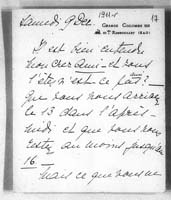 Samedi 9 Dec. 1944 17
GRANDE COLOMBE DE
RAMBOUILLET (S&O)
C'est bien entendu
mon cher ami - et vous
l'êtes n'est ce pas?
Que vous nous arriviez
le 13 dans l'après-
midi et que vous nous
restiez au moins jusqu'au
16 -
Mais ce que vous ne